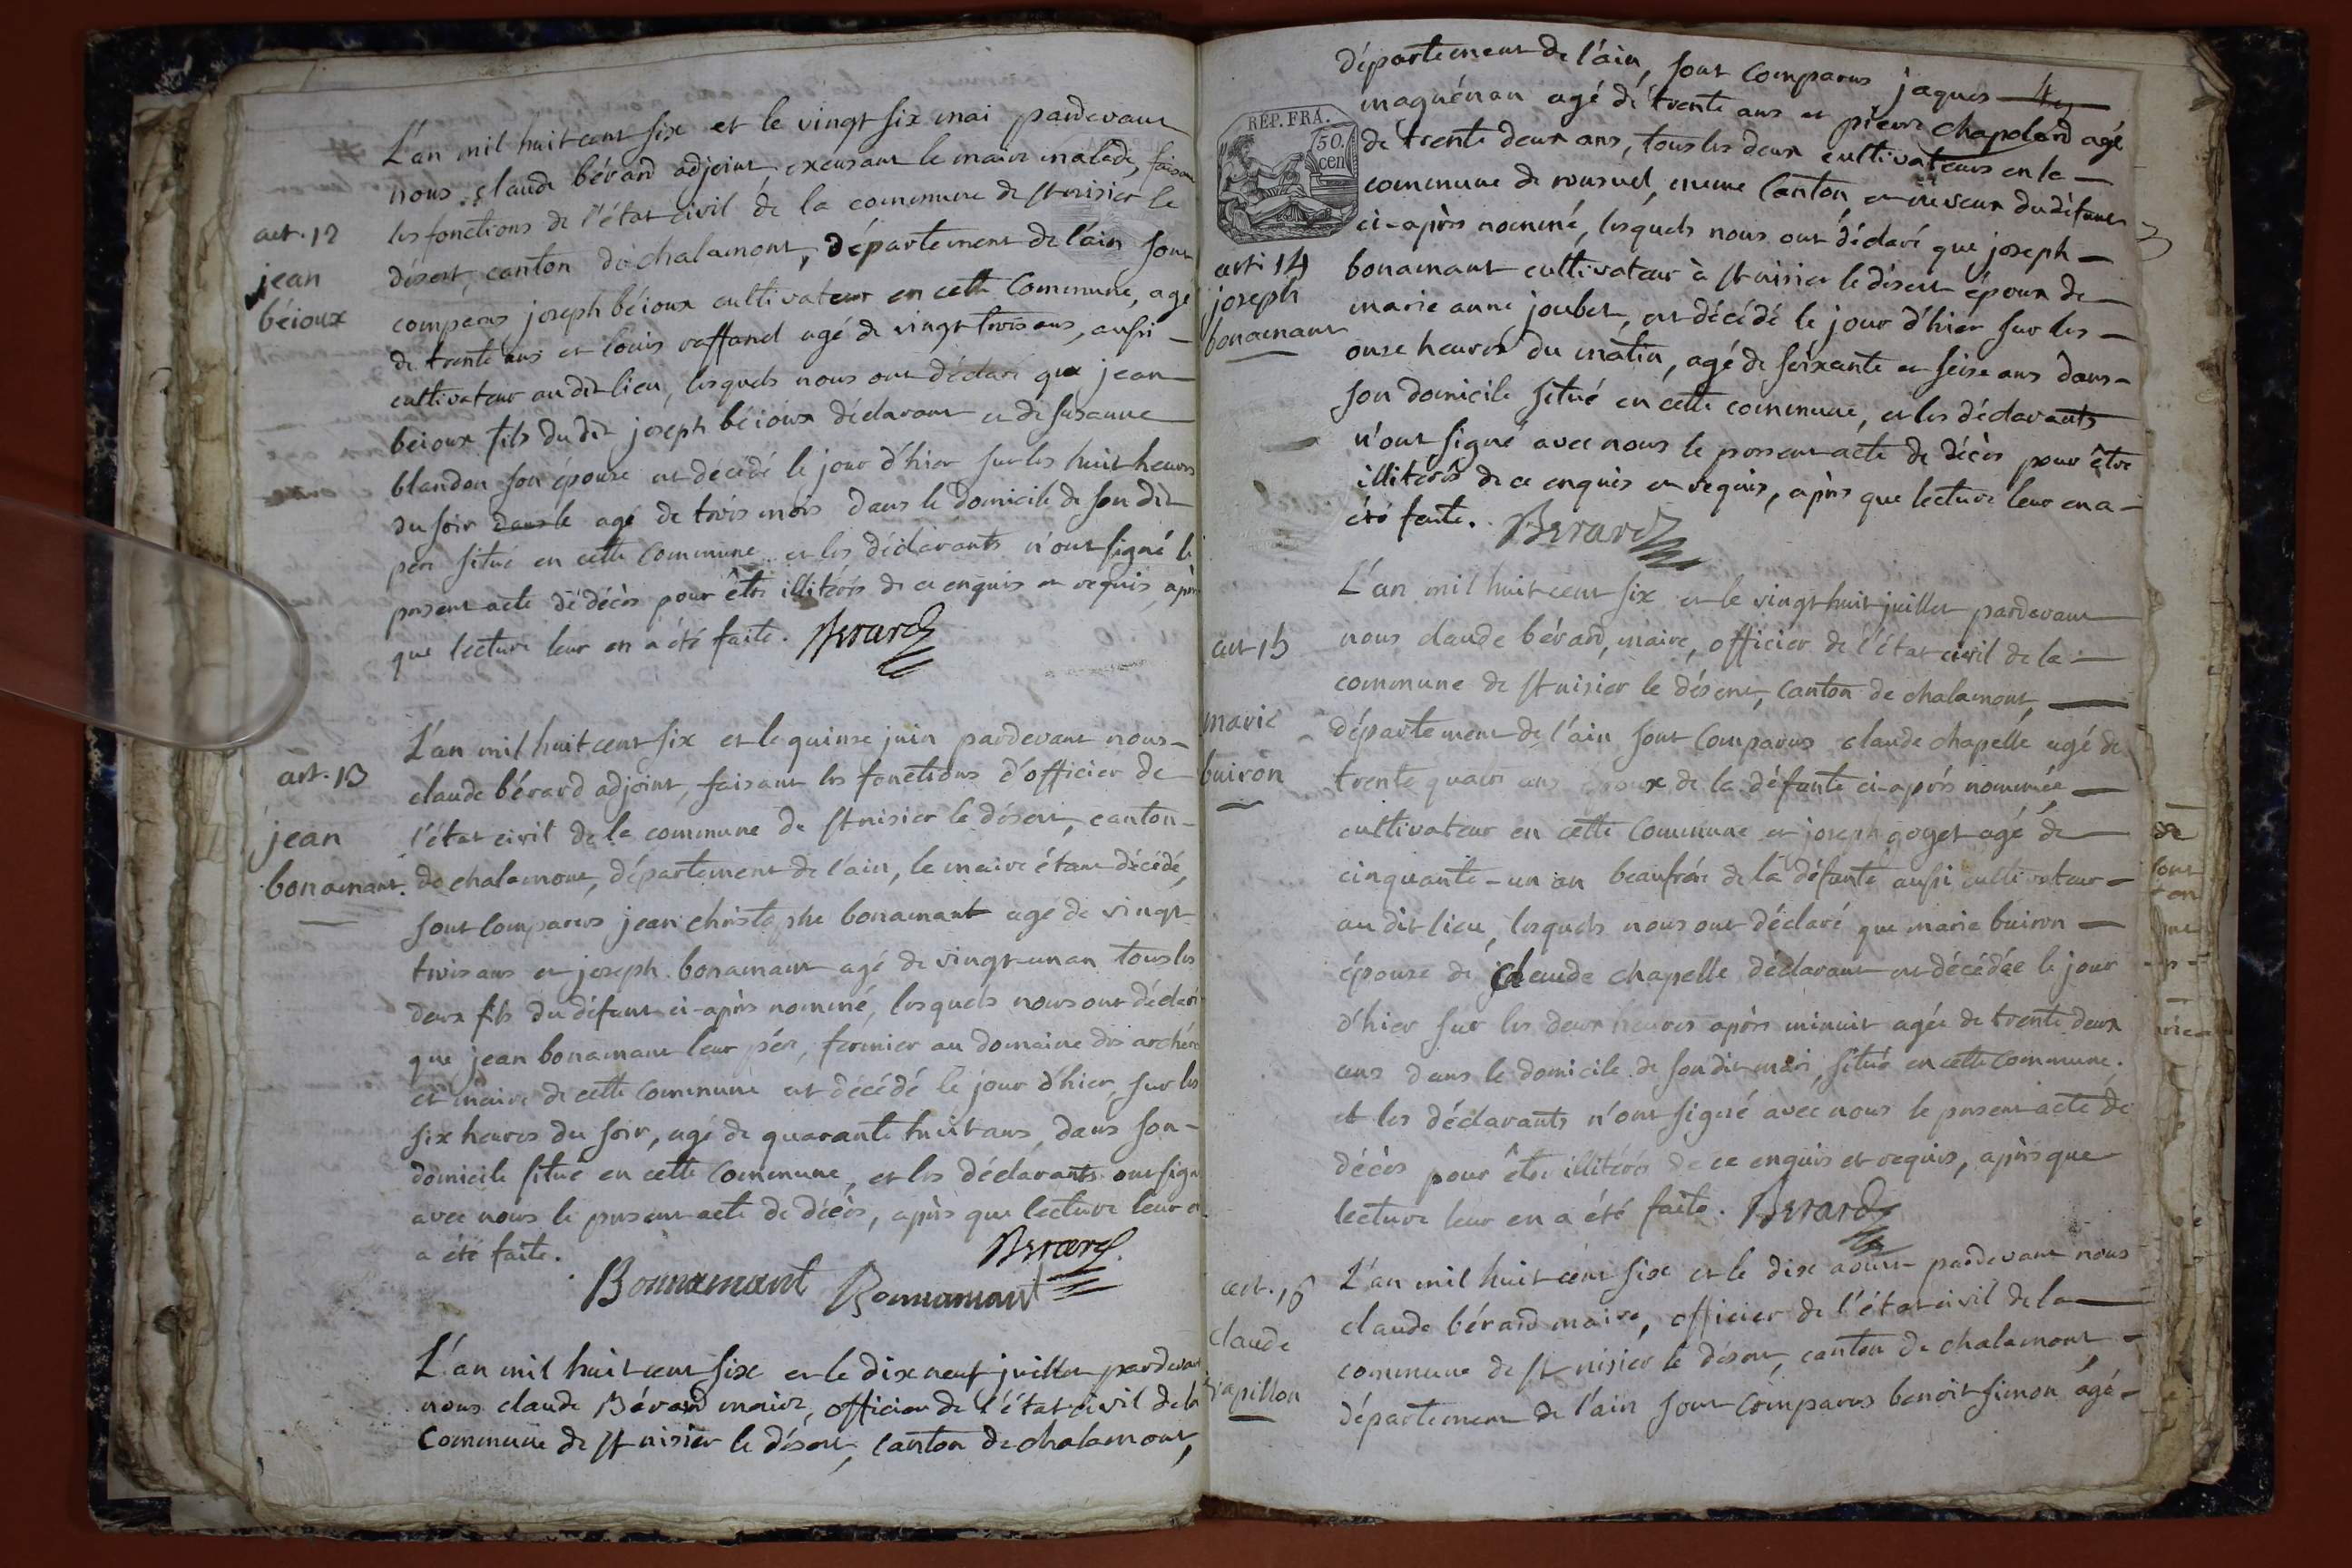 L'an mil huit cent six et le vingt six mai pardevant
nous claude bérard adjoint, excusant le maire malade, faisant
les fonctions de l'état civil de la commune de st nisier le
art. 12
désert, canton de chalamont, département de l'ain sont
jean
béioux
comparus joseph béioux cultivateur en cette commune, agé
de trente ans et louis raffanel agé de vingt trois ans, aussi
cultivateur au dit lieu, lesquels nous ont déclaré que jean
beioux fils du dit joseph béioux déclarant et de susanne
blandon son épouse est décédé le jour d'hier sur les huit heures
du soir dans le agé de trois mois dans le domicile de son dit
père situé en cette commune et les déclarants n'ont signé le
present acte de décès pour être illitérés de ce enquis et requis, après
que lecture leur en a été faite. Berard
L'an mil huit cent six et le quinse juin pardevant nous
art. 13
claude bérard adjoint, faisant les fonctions d'officier de
jean
l'état civil de la commune de st nisier le désert, canton
bonamant.
de chalamont, département de l'ain, le maire étant décédé,
sont comparus jean christophe bonamant agé de vingt
trois ans et joseph bonamant agé de vingt un an tous les
deux fils du défunt ci-après nommé, lesquels nous ont déclaré
que jean bonamant leur père, fermier au domaine des
et maire de cette commune est décédé le jour d'hier, sur les
six heures du soir, agé de quarante huit ans, dans son
domicile situé en cette commune, et les déclarants ont signé
avec nous le present acte de décès, après que lecture leur en
a été faite. Berard
Bonnamant Bonnamant
L'an mil huit cent six et le dix neuf juillet pardevant
nous claude Bérard maire, officier de l'état civil de la
commune de st nisier le désert, canton de chalamont,
département de l'ain, sont comparus jaques
REP. FRA.
50.
cen
maguénan agé de trente ans et pierre chapolard agé
de trente deux ans, tous les deux cultivateurs en la
commune de ronsuel, meme canton, et neveux du défunt
ci-après nommé, lesquels nous ont déclaré que joseph
art. 14
joseph
bonamant
bonamant cultivateur à st nisier le désert époux de
marie anne joubet, est décédé le jour d'hier sur les
onse heures du matin, agé de soixante et seise ans dans
son domicile situé en cette commune, et les déclarants
n'ont signé avec nous le present acte de décès pour être
illitérés de ce enquis et requis, après que lecture leur en a
été faite. Berard
L'an mil huit cent six et le vingt huit juillet pardevant
art 15
nous claude bérard, maire, officier de l'état civil de la
commune de st nisier le désert, canton de chalamont,
marie
buiron
département de l'ain sont comparus claude chapelle agé de
trente quatre ans époux de la défunte ci-après nommée
cultivateur en cette commune et joseph goyet agé de
cinquante-un an beaufrère de la défunte aussi cultivateur
au dit lieu, lesquels nous ont déclaré que marie buiron
épouse de claude chapelle déclarant est décédée le jour
d'hier sur les deux heures après minuit agée de trente deux
ans dans le domicile de son dit mari, situé en cette commune.
et les déclarants n'ont signé avec nous le present acte de
décès pour être illitérés de ce enquis et requis, après que
lecture leur en a été faite. Berard
art. 16
L'an mil huit cent six et le dix aoust pardevant nous
claude
claude bérard maire, officier de l'état civil de la
commune de st nisier le désert, canton de chalamont
papillon
département de l'ain sont comparus benoit simon agé